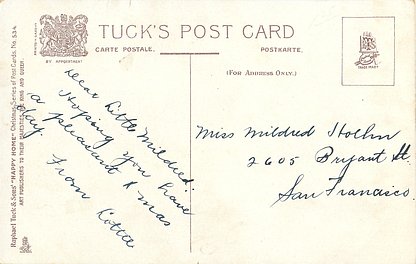 TUCK'S POST CARD
CARTE POSTALE.
POSTKARTE.
BY APPOINTMENT
(FOR ADDRESS ONLY.)
TRADE MARK
Raphael Tuck & Sons' "HAPPY HOME" Christmas Series of Post Cards, No. 534
ART PUBLISHERS TO THEIR MAJESTIES THE KING AND QUEEN.
Dear Little Mildred:
Hoping you have
a pleasant X mas
day
From Lottie
Miss Mildred
2605 Bryant St.
San Francisco